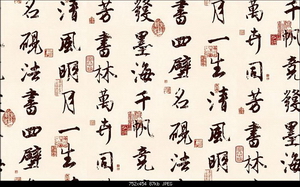 千帆競發墨海
萬卉同芳書林
月一生清風明
書四壁名硯法
發墨海千帆競
芳書林萬卉同
清風明月一生
名硯法書四壁
752x454 87kb JPEG